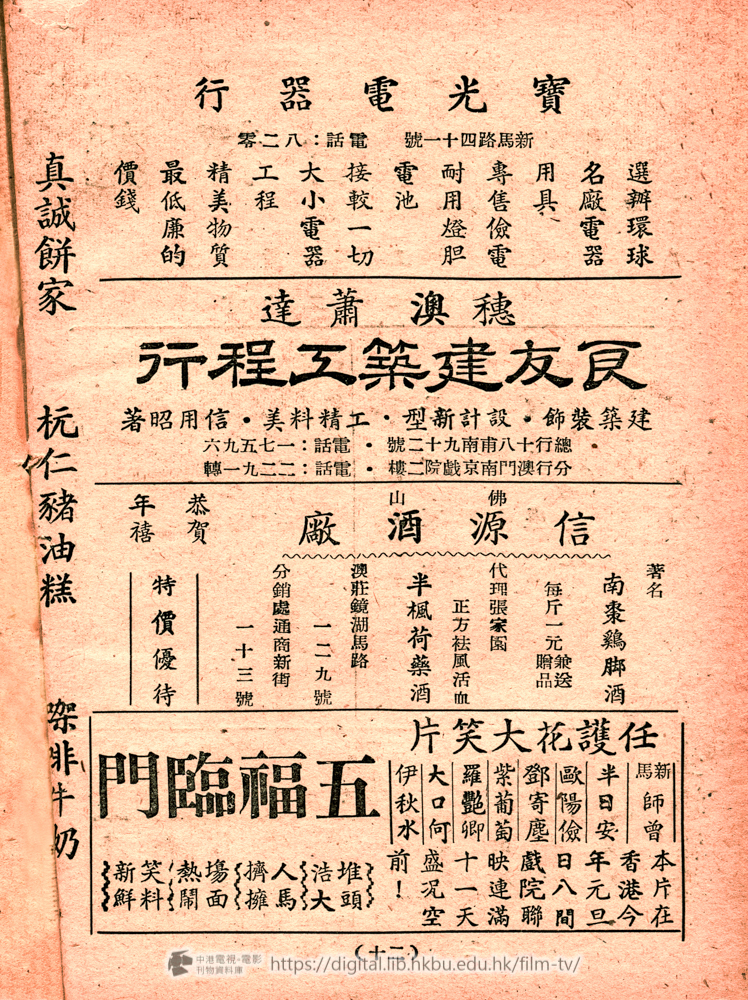 寶光電器行
新馬路四十一號 電話：八二零
選辦環球
名廠電器
用具
專售儉電
耐用燈胆
電池
接較一切
大小電器
工程
精美物質
最低廉的
價錢
穗澳蕭達
良友建築工程行
建築裝飾・設計新型・工精料美・信用昭著
總行十八甫南九十二號・電話：一七五九六
分行澳門南京戲院二樓・電話：二二九一轉
佛山
信源酒廠
恭賀
年禧
著名
南棗鷄脚酒
每斤一元兼送贈品
代理張家園
正方祛風活血
半楓荷藥酒
澳莊鏡湖馬路
一二九號
分銷處通商新街
一十三號
特價優待
任護花大笑片
五福臨門
新馬師曾
半日安
歐陽儉
鄧寄塵
紫葡萄
羅艷卿
大口何
伊秋水
本片在
香港今
年元旦
日八間
戲院聯
映連滿
十一天
盛况空
前！
堆頭浩大
人馬擠擁
塲面熱鬧
笑料新鮮
真誠餅家
杬仁豬油糕
㗎啡牛奶
（十二）
中港電視・電影
刊物資料庫
https://digital.lib.hkbu.edu.hk/film-tv/